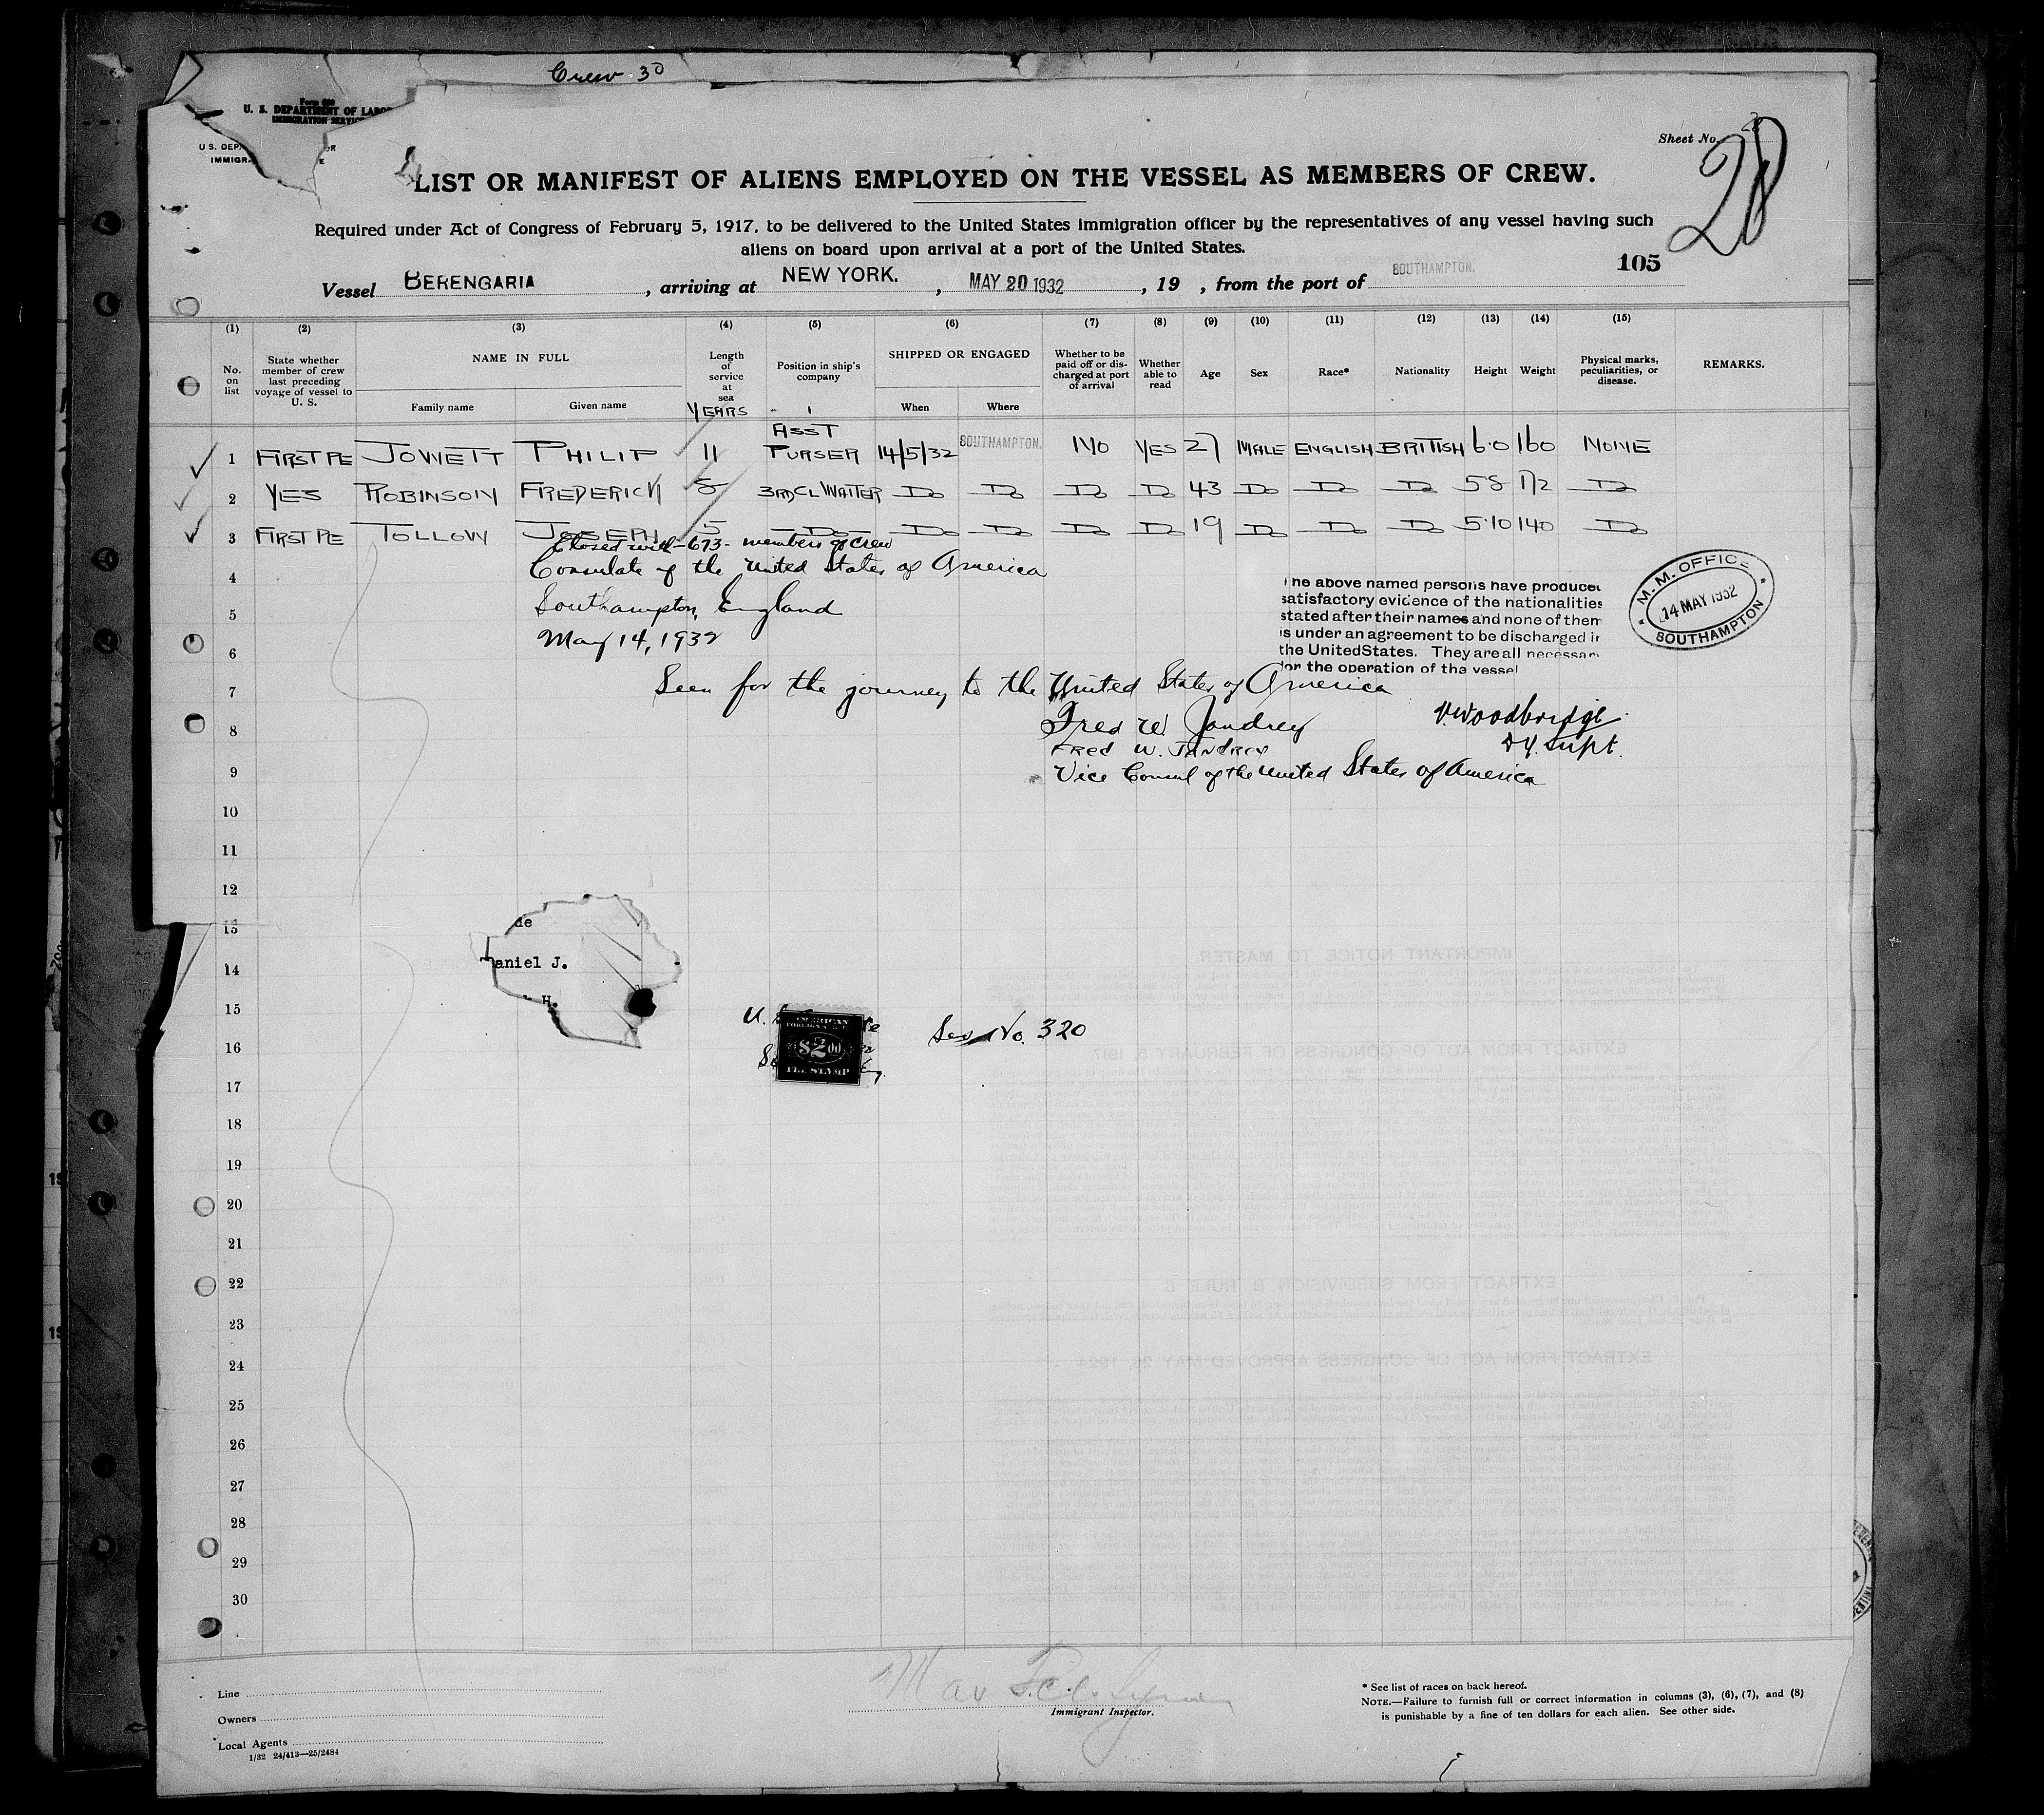 Crew 30
Form 680
U. S. DEPARTMENT OF LABOR
IMMIGRATION SERVICE
U S. DEP
IMMIGR
Sheet No. 28
28
LIST OR MANIFEST OF ALIENS EMPLOYED ON THE VESSEL AS MEMBERS OF CREW.
Required under Act of Congress of February 5, 1917, to be delivered to the United States immigration officer by the representatives of any vessel having such
aliens on board upon arrival at a port of the United States.
105
Vessel BERENGARIA, arriving at NEW YORK., MAY 20 1932, 19 , from the port of SOUTHAMPTON.
(1) (2) (3) (4) (5) (6) (7) (8) (9) (10) (11) (12) (13) (14) (15)
No. on list
State whether member of crew last preceding voyage of vessel to U. S.
NAME IN FULL
Family name
Given name
Length of service at sea
YEARS
Position in ship's company
SHIPPED OR ENGAGED
When
Where
Whether to be paid off or discharged at port of arrival
Whether able to read
Age
Sex
Race*
Nationality
Height
Weight
Physical marks, peculiarities, or disease.
REMARKS.
1 FIRST PE JOWETT PHILIP 11 ASST PURSER 14/5/32 SOUTHAMPTON. NO YES 27 MALE ENGLISH BRITISH 6·0 160 NONE
2 YES ROBINSON FREDERICK 8 3RD CL WAITER Do Do Do Do 43 Do Do Do 5·8 172 Do
3 FIRST PE TOLLOW JOSEPH 5 Do Do Do Do Do 19 Do Do Do 5·10 140 Do
Closed with -673- members of crew
4 Consulate of the United States of America
5 Southampton, England
6 May 14, 1932
The above named persons have produced
satisfactory evidence of the nationalities
stated after their names and none of them
is under an agreement to be discharged in
the United States. They are all necessary
for the operation of the vessel
M. M. OFFICE
14 MAY 1932
SOUTHAMPTON
7 Seen for the journey to the United States of America
8 Fred W. Jandrey
V. Woodbridge
Dy. Supt.
FRED W. JANDREY
9 Vice Consul of the United States of America
10
11
12
13
de
14
aniel J.
15
H.
AMERICAN
$2.00
FEE STAMP
Ser No. 320
16
17
18
19
20
21
22
23
24
25
26
27
28
29
30
Line
Owners
Local Agents
1/32 24/413—25/2484
Immigrant Inspector.
* See list of races on back hereof.
NOTE.—Failure to furnish full or correct information in columns (3), (6), (7), and (8)
is punishable by a fine of ten dollars for each alien. See other side.